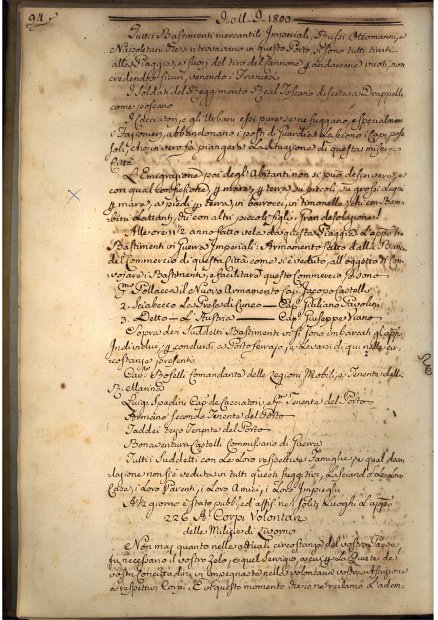 94. J. M. J. 1800
Tutti i Bastimenti mercantili Imperiali, Prussi, Ottomanni, e
Napoletani che si trovavano in questo Porto, si sono tutti tirati
alla Piaggia, e fuori del tiro del Cannone p andarsene vuoti, non
credendosi sicuri, venendo i Francesi
I Soldati del Reggimento Real Toscano disertano a Drappelli
come possano
I Cacciatori, e gli Urbani essi pure se ne fuggano, e specialmen
i abbandonano i posti di Guardia, e lasciono i Capi posti
soli, che in vero fa piangere la situazione di questa misera
Città
L'Emigrazione poi degli Abitanti non si può descrivere, e
con qual p mare, p terra, su piccoli, su grossi Legni
p mare, a piedi p terra, in barrocci, in timonelle, chi con Bam
bini Lattanti, chi con altri piccoli figli. Gran desolazione!
Alle ore 11½ anno fatto vela da questa Piaggia L'appo tre
Bastimenti in Guerra Imperiali: Armamento fatto dalla Banca
del Commercio di questa Città come si è veduto, all'oggetto di Con
vojare i Bastimenti, e facilitare questo Commercio, e sono
Pollacca il Nuovo Armamento Cap. Jacopo Castelli
2. Sciabecco La Presa di Cuneo — Cap. Giuliano
3. Detto — L'Austria — Cap. Giuseppe Viano
Sopra dei Suddetti Bastimenti vi si sono imbarcati gl'appi
Individui p condursi a Portoferrajo, e Levarsi di qui nelle cir
costanze presenti
Cap. Boselli Comandante delle Legioni Mobili, e Tenente della
Marina
Luigi Spadini Cap. de Cacciatori, e Tenente del Porto
Africano secondo Tenente del Porto
Taddei terzo Tenente del Porto
Bonaventura Castelli Commissario di Guerra
Tutti i Suddetti con le Loro respettive Famiglie, e qual deso
lazione non si è veduta in tutti questi fuggitivi, Lasciando le Loro
Case, i Loro Parenti, i Loro Amici, i Loro Impieghi
A ½ giorno è stato pubb. ed affisso ne' soliti Luoghi L'appo
226 A' Corpi Volontari
delle Milizie di Livorno
Non mai quanto nelle attuali circostanze del vostro Paese
fu necessario il vostro zelo, e quel Servizio, a cui p la Quiete de'
vostri Concittadini vi impegnaste nella volontaria vostra Ascrizione
a respettivi Corpi. E in questo momento che io ne reclamo L'adem-